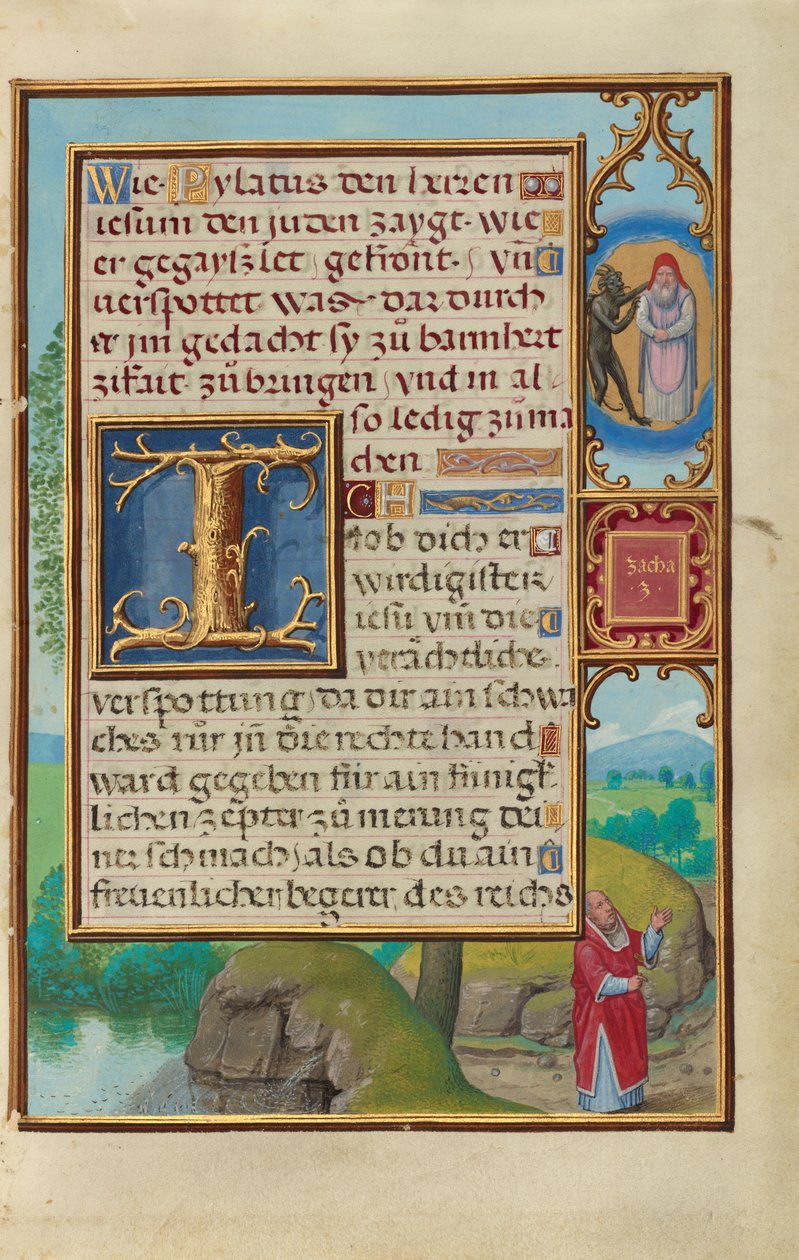 Wie Pylatus den herren
iesum den juden zaygt. wie
er gegayszlet, gekrönt, vn̄
uerspottet was dar durch
er im gedacht sy zů barmhert
zikait zů bringen, vnd in al
so ledig zů ma
chen
ICH
lob dich er
wirdigister
iesu vm̄ die
verächtliche
verspottung, da dir ain schwa
ches růr jn̄ die rechte hand
ward gegeben für ain künigk
lichen zepter zů merung dei
ner schmach, als ob du ain
freuenlicher begerer des reichs
zacha
3